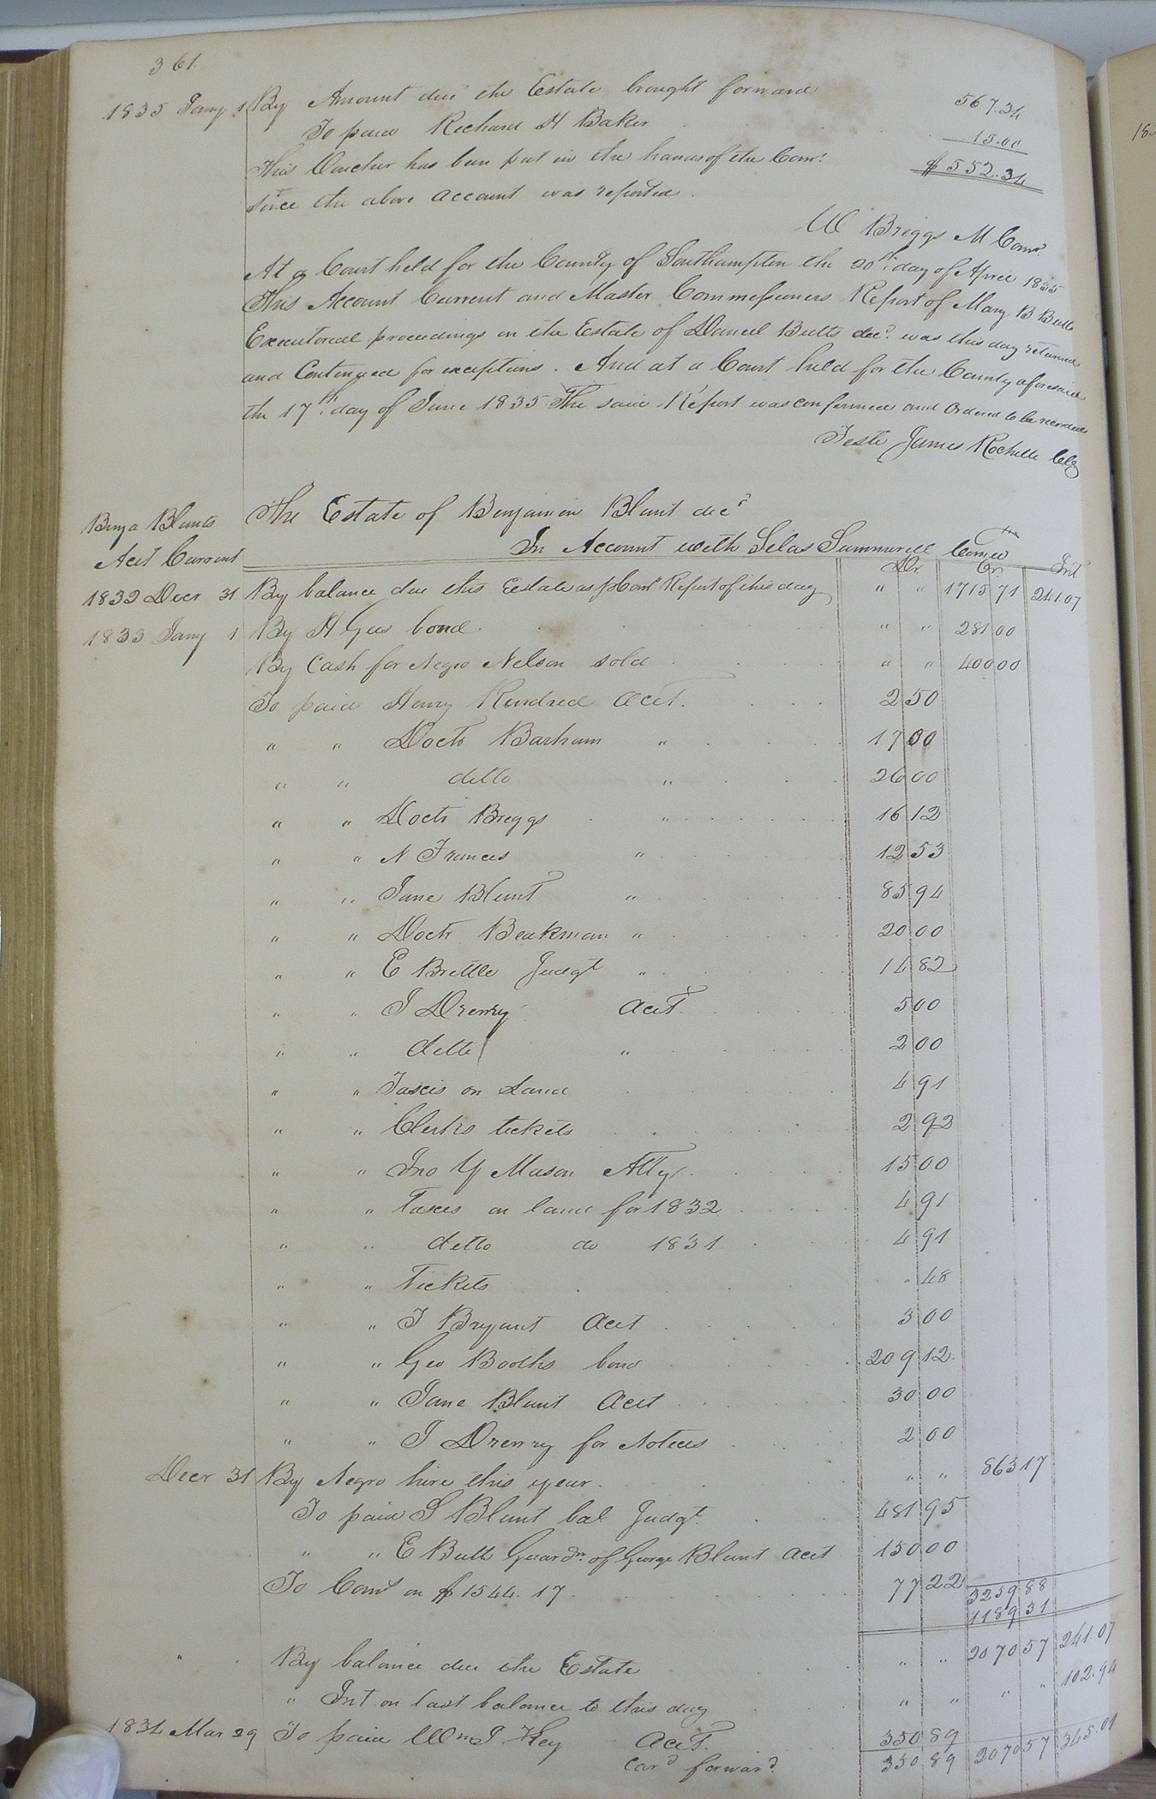 361
1835 Jany 1 By Amount due the Estate brought forward 567.34
To paid Richard H Baker 15.00
This Voucher has been put in the hands of the Comr. $552.34
since the above account was reported.
W Briggs M Comr.
At a Court held for the County of Southampton the 20th day of April 1835
This Account Current and Master Commissioners Report of Mary B Butts
Executorial proceedings on the Estate of Daniel Butts decd. was this day returned
and Continued for exceptions. And at a Court held for the County aforesaid
the 17th day of June 1835 The said Report was confirmed and Ordered to be recorded
Teste James Rochelle Clk
Benja Blunts The Estate of Benjamin Blunt decd
Acct Current In Account with Silas Summerell Comee
Dr. Cr. Int
1832 Decr 31 By balance due this Estate as p Coms Report of this day " " 1715 71 241.07
1833 Jany 1 By H Gees bond " " 281 00
By Cash for Negro Nelson sold " " 400 00
To paid Henry Kindred acct. 2 50
" " Doctr Barham " 17 00
" " ditto " 26 00
" " Doctr Briggs " 16 12
" " N Frances " 12 53
" " Jane Blunt " 85 94
" " Doctr Beakman " 20 00
" " E Brittle Judgt " 14 82
" " J Drewry acct. 5 00
" " ditto " 2 00
" " Taxes on Land 4 91
" " Clerks tickets 2 92
" " Jno Y Mason Atty. 15 00
" " Taxes on land for 1832 4 91
" " ditto do 1831 4 91
" " Tickets . 48
" " J Bryant acct 3 00
" " Geo Booths bond 209 12
" " Jane Blunt acct 30 00
" " J Drewry for Notices 2 00
Decr 31 By Negro hire this year " " 863 17
To paid S Blunt bal Judgt. 481 95
" " E Butts Guardn. of George Blunt acct 150 00
To Coms on $1544.17 77 22 3259 88
1189 31
By balance due the Estate " " 2070 57 241.07
" Int on last balance to this day " " " " 102.94
1834 Mar 29 To paid Wm J Key acct. 350 89
Card forward. 350 89 2070 57 345.01